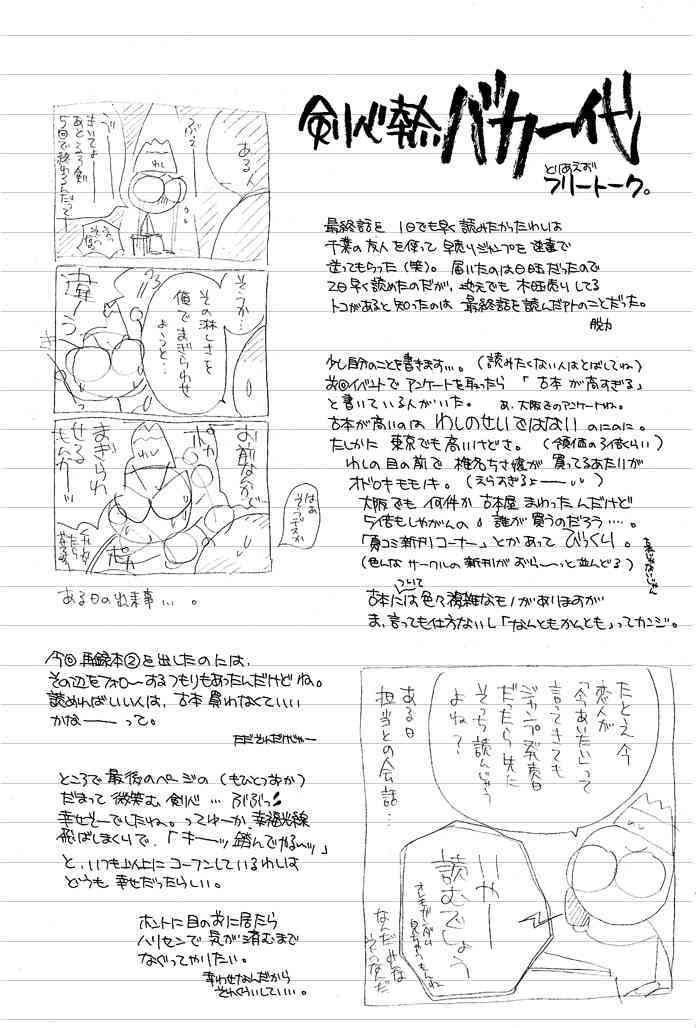 剣心熱バカ一代
とりあえず
フリートーク。
最終話を 1日でも早く読みたかったわしは
千葉の友人を使って早売りジャンプを速達で
送ってもらった(笑)。届いたのは日曜だったので
2日早く読めたのだが、地元でも木曜売りしてる
トコがあると知ったのは 最終話を読んだアトのことだった。
脱力
少し自分のことを書きます…。(読みたくない人はとばしてね)
前回イベントでアンケートを取ったら「古本が高すぎる」
と書いている人がいた。 あ、大阪でのアンケートね。
古本が高いのは わしのせいではない のにのに。
たしかに 東京でも高いけどさ。(領価の3倍くらい)
わしの目の前で 椎名ちさ嬢が 買ってるあたりが
オドロキモモノキ。(えらすぎるよー)
大阪でも 何件か古本屋まわったんだけど
5倍もしやがんの 誰が買うのだろう…。
「夏コミ新刊コーナー」とかあって びっくり。
(色んなサークルの新刊がずら〜っと並んどる)
古本には色々複雑なモノがありますが
ついて
ま、言っても仕方ないし「なんともかんとも」ってカンジ。
ある人
わし
さいてよ
あと
5回で終わるんだって
そうか…
その淋しさを
俺でまぎらわせ
ようと…
違ーう
お前なんかで
まぎらわ
せるもんかーッ
はあ
そーデスか
ある日の出来事…。
今回 再録本②を出したのには、
その辺をフォローするつもりもあったんだけどね。
読めればいい人は、古本買わなくていい
かなーって。
ただそんだけじゃー
ところで最後のページの(もひとつおか)
だまって微笑む剣心…ぶぶっ!
幸せそーでしたね。ってゆーか、幸福光線
飛ばしまくりで、「キーッ踏んでやるーッ」
と、いつも以上にコーフンしているわしは
どうも幸せだったらしい。
ホントに目の前に居たら
ハリセンで気が済むまで
なぐってやりたい。
幸わせなんだから
そんくらいしていい…。
たとえ今
恋人が
「今あいたい」って
言ってきても
ジャンプ発売日
だったら先に
そっち読んじゃう
よね?
ある日
担当との会話…
いやー
読むでしょう
なんだみな
そう